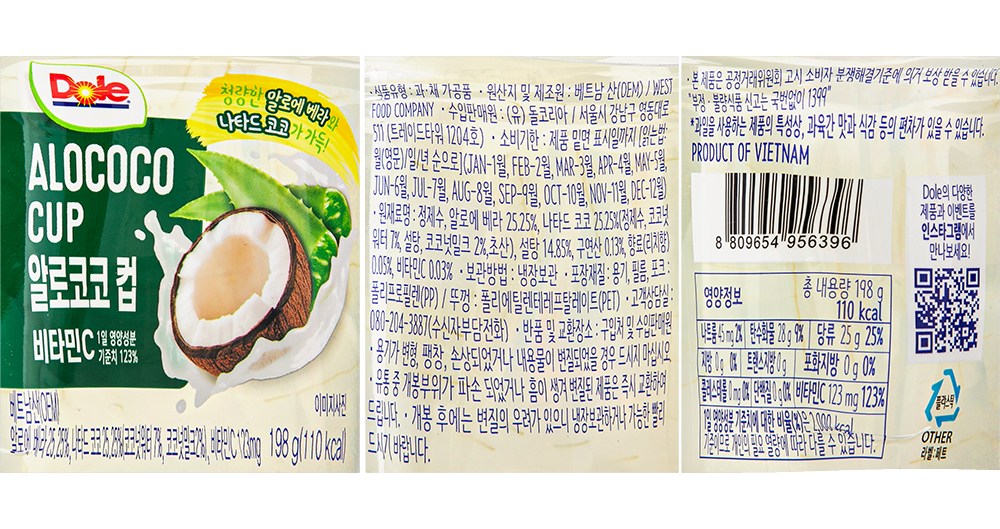 Dole
청량한 알로에 베라와
나타드 코코가 가득!
ALOCOCO
CUP
알로코코 컵
비타민C 1일 영양성분
기준치 123%
이미지사진
베트남산(OEM)
알로에 베라 25.25%, 나타드 코코 25.25%(코코넛워터 7%, 코코넛밀크2%), 비타민C 123mg 198 g(110 kcal)
· 식품유형 : 과·채 가공품 · 원산지 및 제조원 : 베트남 산(OEM) / WEST
FOOD COMPANY · 수입판매원 : (유) 돌코리아 / 서울시 강남구 영동대로
511 (트레이드타워 1204호) · 소비기한 : 제품 밑면 표시일까지 [읽는법:
월(영문)/일/년 순으로](JAN-1월, FEB-2월, MAR-3월, APR-4월, MAY-5월,
JUN-6월, JUL-7월, AUG-8월, SEP-9월, OCT-10월, NOV-11월, DEC-12월)
· 원재료명 : 정제수, 알로에 베라 25.25%, 나타드 코코 25.25%(정제수, 코코넛
워터 7%, 설탕, 코코넛밀크 2%, 초산), 설탕 14.85%, 구연산 0.13%, 향료(리치향)
0.05%, 비타민C 0.03% · 보관방법 : 냉장보관 · 포장재질 : 용기, 필름, 포크 :
폴리프로필렌(PP) / 뚜껑 : 폴리에틸렌테레프탈레이트(PET) · 고객상담실 :
080-204-3887(수신자부담전화) · 반품 및 교환장소 : 구입처 및 수입판매원
용기가 변형, 팽창, 손상되었거나 내용물이 변질되었을 경우 드시지 마십시오
· 유통 중 개봉부위가 파손 되었거나 흠이 생겨 변질된 제품은 즉시 교환하여
드립니다. · 개봉 후에는 변질의 우려가 있으니 냉장보관하거나 가능한 빨리
드시기 바랍니다.
· 본 제품은 공정거래위원회 고시 소비자 분쟁해결기준에 의거 보상 받을 수 있습니다.
"부정·불량식품 신고는 국번없이 1399"
*과일을 사용하는 제품의 특성상, 과육간 맛과 식감 등의 편차가 있을 수 있습니다.
PRODUCT OF VIETNAM
8 809654 956396
Dole의 다양한
제품과 이벤트를
인스타그램에서
만나보세요!
영양정보 총 내용량 198 g
110 kcal
나트륨 45 mg 2% 탄수화물 28 g 9% 당류 25 g 25%
지방 0 g 0% 트랜스지방 0 g 포화지방 0 g 0%
콜레스테롤 0 mg 0% 단백질 0 g 0% 비타민C 123 mg 123%
1일 영양성분 기준치에 대한 비율(%)은 2,000 kcal
기준이므로 개인의 필요 열량에 따라 다를 수 있습니다.
플라스틱
OTHER
라벨:페트